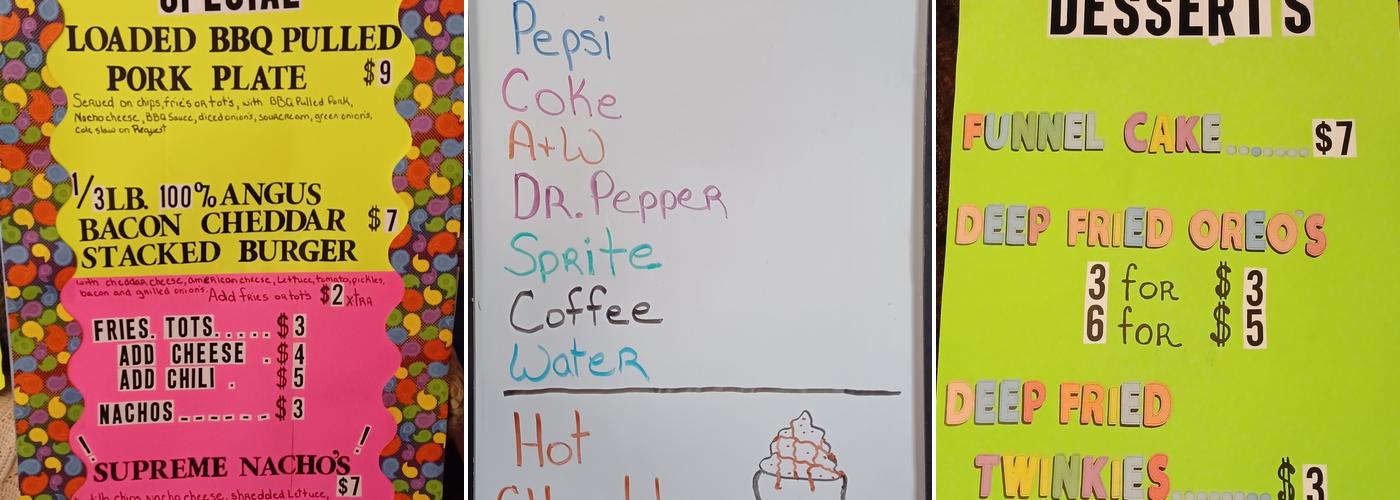 SPECIAL
LOADED BBQ PULLED
PORK PLATE $9
Served on chips, frie's or tot's, with BBQ Pulled Pork,
Nacho cheese, BBQ Sauce, diced onion's, sour cream, green onion's,
Cole slaw on Request
1/3LB. 100% ANGUS
BACON CHEDDAR $7
STACKED BURGER
with cheddar cheese, american cheese, Lettuce, tomato, pickles,
bacon and grilled onion's. Add fries or tots $2 xtra
FRIES. TOTS..... $3
ADD CHEESE . $4
ADD CHILI . $5
NACHOS ------ $3
! SUPREME NACHO'S !
$7
chips, nacho cheese, shredded Lettuce,
Pepsi
Coke
A+W
DR. Pepper
Sprite
Coffee
Water
Hot
DESSERTS
FUNNEL CAKE........ $7
DEEP FRIED OREO'S
3 for $3
6 for $5
DEEP FRIED
TWINKIES........ $3